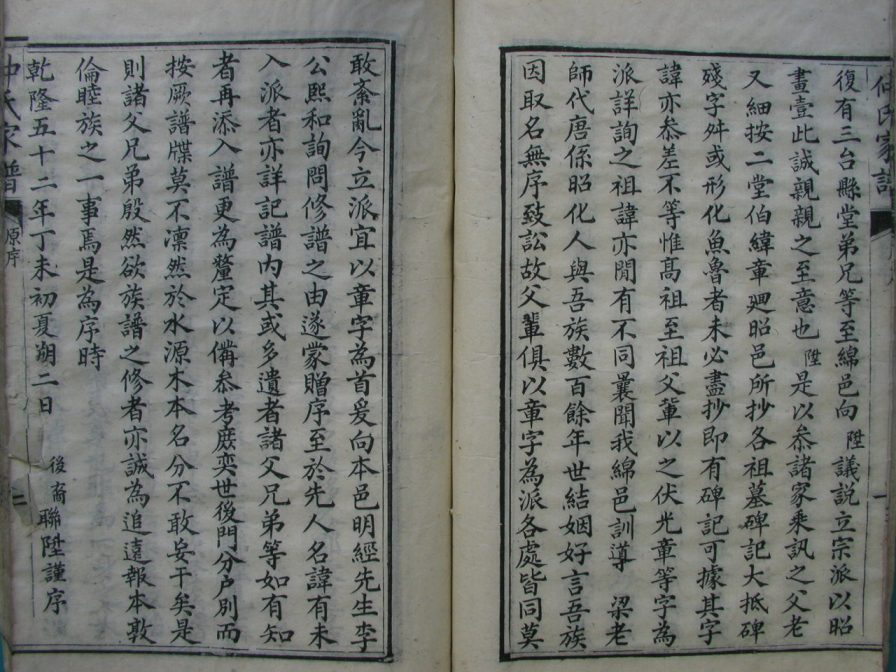 復有三台縣堂弟兄等至綿邑向陞議説立宗派以昭
畫壹此誠親親之至意也陞是以叅諸家乘訊之父老
又細按二堂伯緯章廻昭邑所抄各祖墓碑記大抵碑
殘字舛或形化魚魯者未必盡抄即有碑記可據其字
諱亦叅差不等惟髙祖至祖父軰以之伏光章等字為
派詳詢之祖諱亦閒有不同曩聞我綿邑訓導 梁老
師代唐係昭化人與吾族數百餘年世結姻好言吾族
因取名無序致訟故父軰俱以章字為派各處皆同莫
敢紊亂今立派宜以章字為首爰向本邑明經先生李
公熙和詢問修譜之由遂蒙贈序至於先人名諱有未
入派者亦詳記譜內其或多遺者諸父兄弟等如有知
者再添入譜更為釐定以備叅考庶奕世後門分户別而
按厥譜牒莫不凛然於水源木本名分不敢妄干矣是
則諸父兄弟殷然欲族譜之修者亦誠為追遠報本敦
倫睦族之一事焉是為序時
乾隆五十二年丁未初夏朔二日 後裔聯陞謹序
氏家譜 原序 二